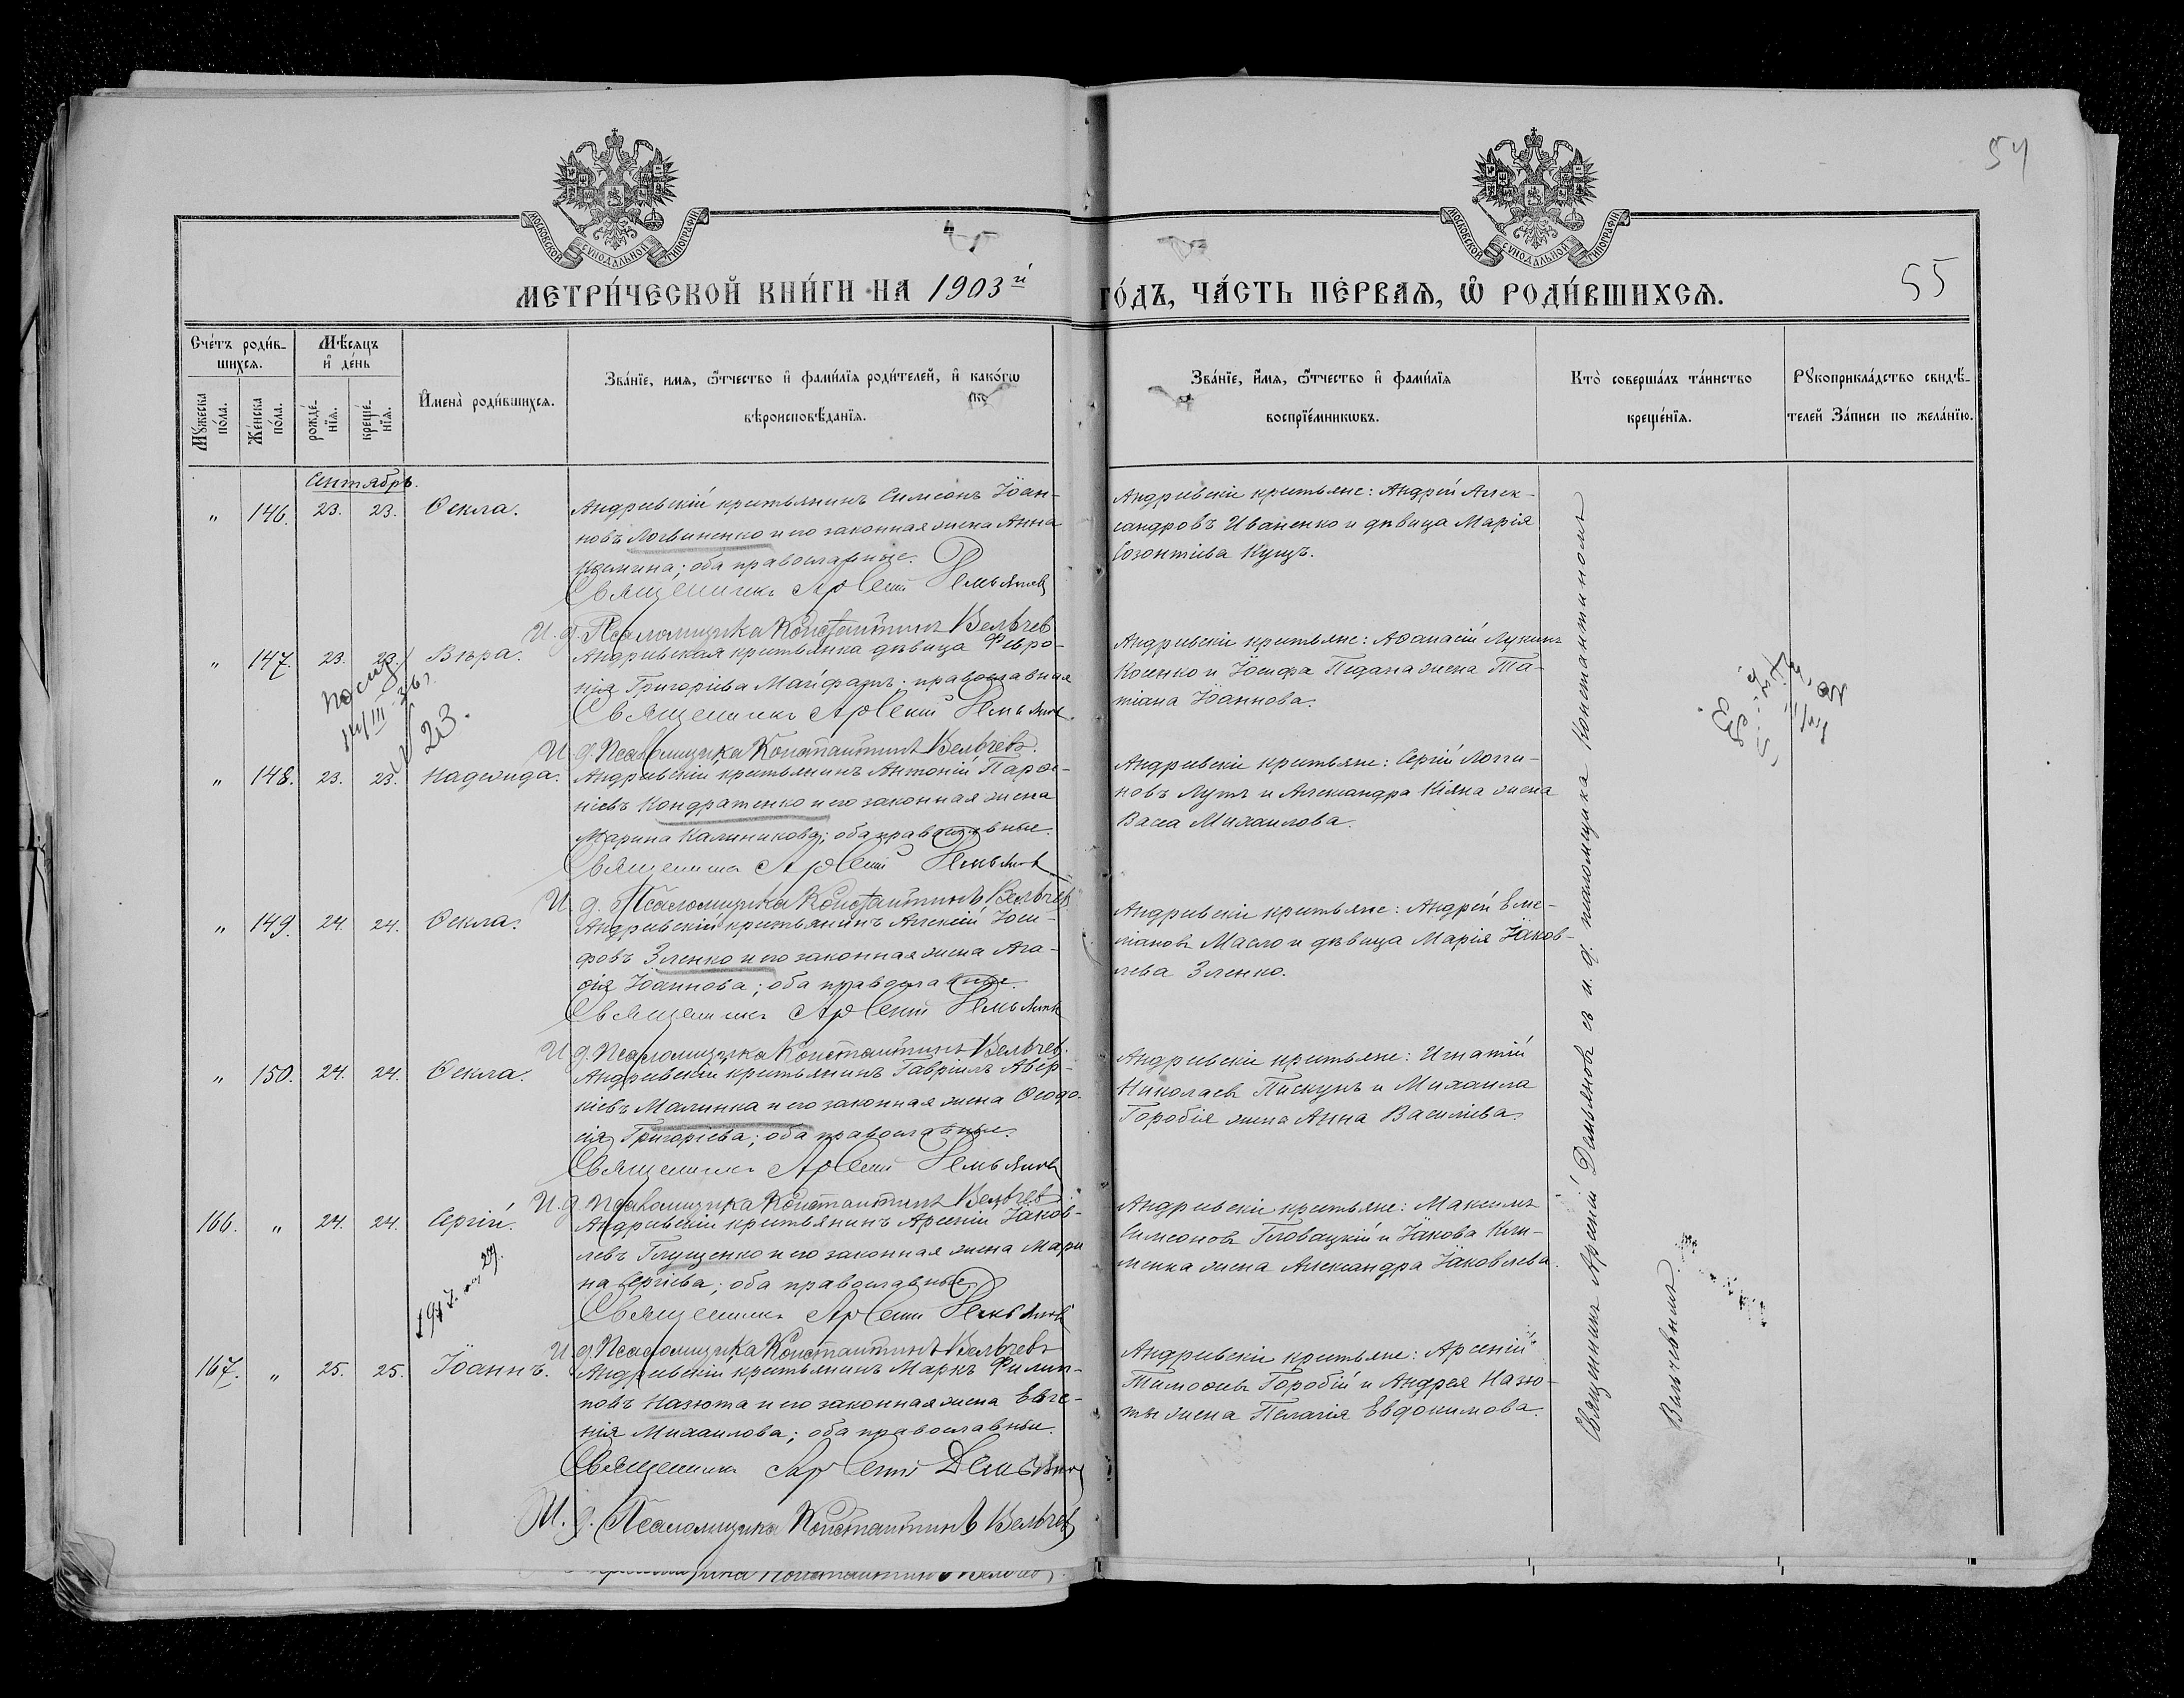 54
МОСКОВСКОЙ СѴНОДАЛЬНОЙ ТИПОГРАФІИ
МОСКОВСКОЙ СѴНОДАЛЬНОЙ ТИПОГРАФІИ
МЕТРИ́ЧЕСКОЙ КНИ́ГИ НА 1903й ГО́ДЪ, ЧА́СТЬ ПЕ́РВАЯ, Ѿ РОДИ́ВШИХСЯ.
55
Сче́тъ роди́в-
шихся.
Мѣ́сяцъ
и де́нь
Мꙋ́жеска
по́ла.
Же́нска
по́ла.
рожде́-
нія.
креще́-
нія.
Имена̀ роди́вшихся.
Зва́ніе, имя, ѻ҆́тчество и фами́лія роди́телей, и како́гѡ
вѣроисповѣ́данія.
Зва́ніе, и́мя, ѻ҆́тчество и фами́лія
воспріе́мникωвъ.
Кто̀ соверша́лъ та́инство
креще́нія.
Рꙋкоприкла́дство свидѣ́-
телей За́писи по жела́нію.
Сентябрь.
„ 146. 23. 23. Ѳекла.
Андреевскій крестьянинъ Симеонъ Іоан-
новъ Логвиненко и его законная жена Анна
; оба православные.
Священникъ Арсеній Демьянов
И. д. Псаломщика Константинъ Вельчев
Андреевскіе крестьяне: Андрей Алек-
сандровъ Иваненко и дѣвица Марія
Созонтіева Кущъ.
„ 147. 23. 23. Вѣра.
Андреевская крестьянка дѣвица Февро-
нія Григоріева Майфатъ; православная
Священникъ Арсеній Демьянов
И. д. Псаломщика Константинъ Вельчевъ.
Андреевскіе крестьяне: Аѳанасій Лукинъ
Косенко и Іосифа Педана жена Та-
тіана Іоаннова.
14/III 36 г.
23.
„ 148. 23. 23. Надежда.
Андреевскій крестьянинъ Антоній Парѳе-
ніевъ Кондратенко и его законная жена
Марина Калиникова; оба православные.
Священникъ Арсеній Демьянов
И. д. Псаломщика Константинъ Вельчев
Андреевскіе крестьяне: Сергій Логги-
новъ Лутъ и Александра Кіяна жена
Васса Михаилова.
„ 149. 24. 24. Ѳекла.
Андреевскій крестьянинъ Алексій Іоси-
фовъ Зленко и его законная жена Ага-
ѳія Іоаннова; оба православные.
Священникъ Арсеній Демьянов
И. д. Псаломщика Константинъ Вельчев.
Андреевскіе крестьяне: Андрей Еме-
ліановъ Масло и дѣвица Марія Іаков-
лева Зленко.
„ 150. 24. 24. Ѳекла.
Андреевскій крестьянинъ Гавріилъ Авер-
кіевъ Малинка и его законная жена Ѳеодо-
сія Григоріева; оба православные.
Священникъ Арсеній Демьянов
И. д. Псаломщика Константинъ Вельчев
Андреевскіе крестьяне: Игнатій
Николаевъ Пискунъ и Михаила
Горобія жена Анна Василіева.
166. „ 24. 24. Сергій.
Андреевскій крестьянинъ Арсеній Іаков-
левъ Глущенко и его законная жена Мари
на Сергіева; оба православные
Священникъ Арсеній Демьянов
И. д. Псаломщика Константинъ Вельчевъ
Андреевскіе крестьяне: Максимъ
Симеоновъ Гловацкій и Іакова Кли-
менка жена Александра Іаковлева.
167. „ 25. 25. Іоаннъ.
Андреевскій крестьянинъ Маркъ Филип-
повъ Назюта и его законная жена Евге-
нія Михаилова; оба православные.
Священникъ Арсеній Демьянов
И. д. Псаломщика Константинъ Вельчев
Андреевскіе крестьяне: Арсеній
Тимоѳеевъ Горобій и Андрея Назю-
ты жена Пелагія Евдокимова.
Священникъ Арсеній Демьяновъ съ и. д. псаломщика Константиномъ
Вельчевымъ.